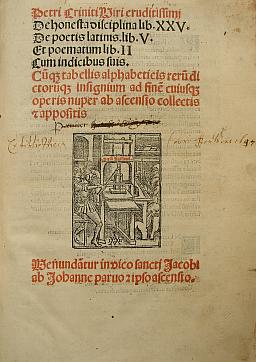 Petri Criniti Viri eruditissimi
De honesta disciplina lib. XXV.
De poetis latinis. lib. V.
Et poematum lib. II
Cum indicibus suis.
Cũ q̃ tabellis alphabeticis rerũ di
ctorũq; insignium ad finẽ cuiusq;
operis nuper ab ascensio collectis
& appositis
Venũdãtur in vico sancti Jacobi
ab Johanne paruo & ipso ascensio.